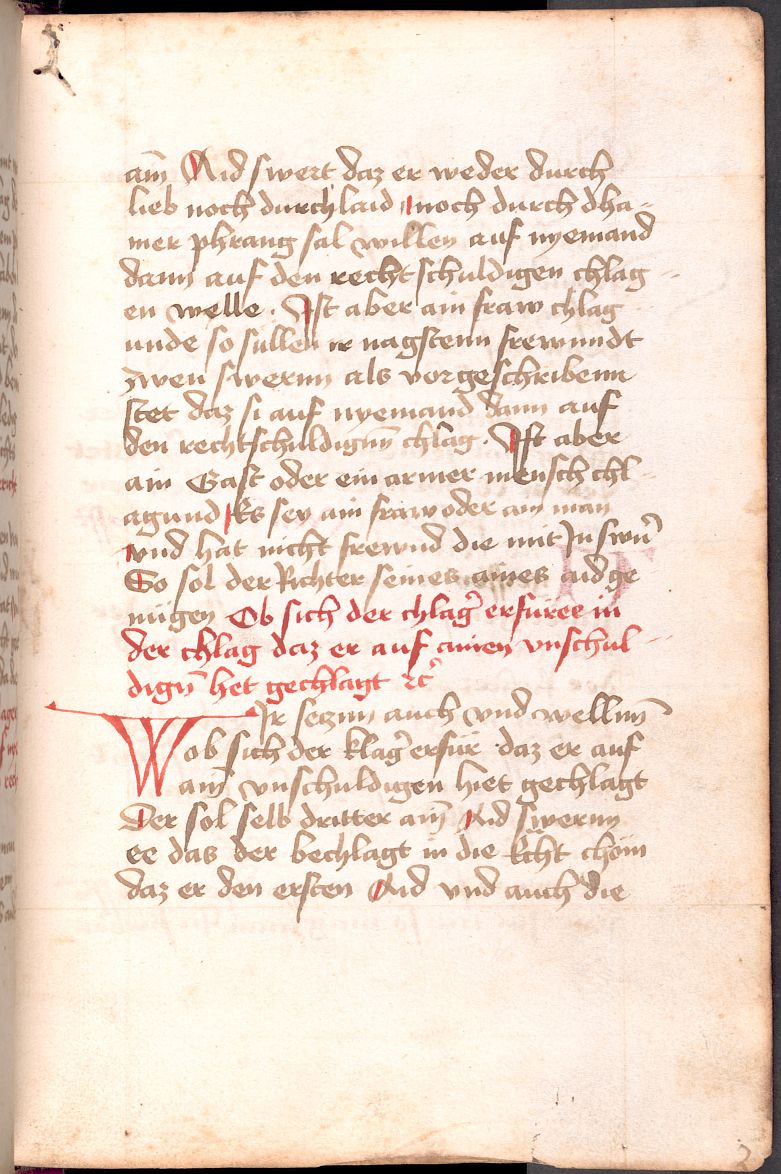 aim̄ Aid swert daz er weder durch
lieb noch durch laid noch durch dha-
mer phrang sal willen auf nyemand
dann auf den recht schuldigen chlag-
en welle. Ist aber ain fraw chlag
unde so sullen ir nagstenn frewnndt
zwen swernn als vorgeschribenn
stet daz si auf nyemand dann auf
den rechtschuldignn̄ chlag. Ist aber
ain Gast oder ein armer mensch chl-
agund Es sey ain fraw oder ain man
vnd hat nicht frewnd die mit In swn̄
So sol der Richter seines aines aid ge
nügen Ob sich der chlag̉ erfüree in
der chlag daz er auf ainen vnschul-
dign̄ het gechlagt ⁊c̉
WIr secznn auch vnd wellnn̄
ob sich der klag̉ erfür daz er auf
ain̄ vnschuldigen hiet gechlagt
Der sol selb dritter ain̄ Aid swernn
ee das der bechlagt in die Ëcht chöm
daz er den ersten Aid vnd auch die